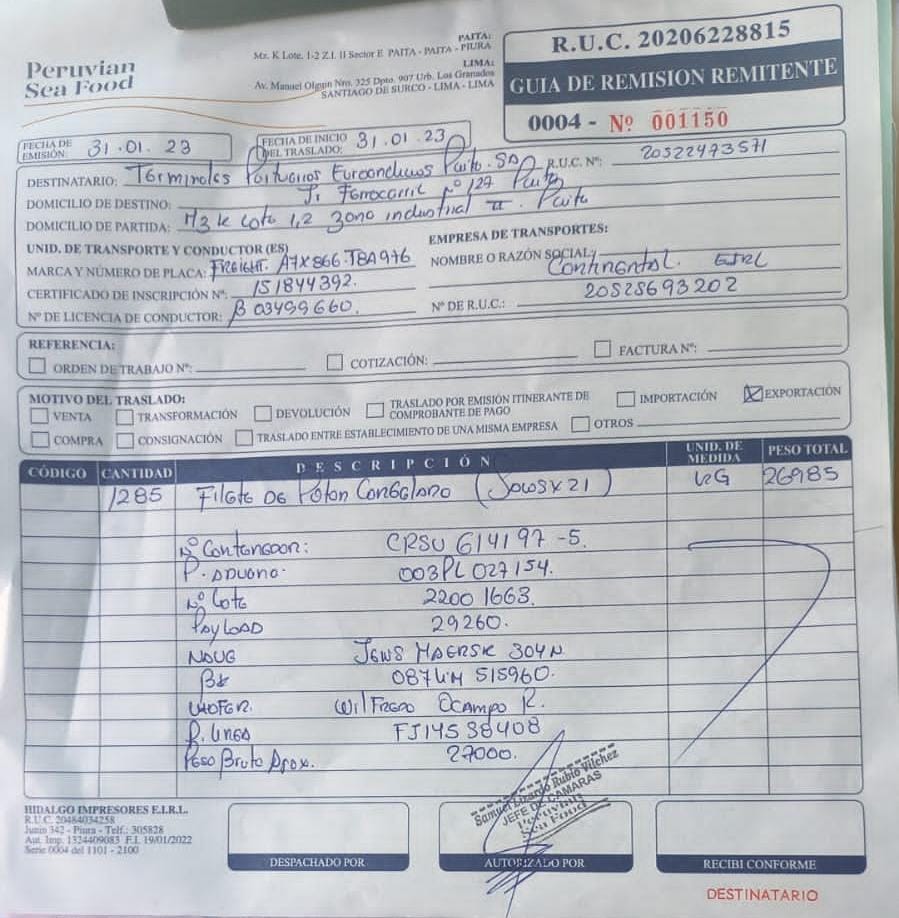 Peruvian
Sea Food
PAITA:
Mz. K Lote. 1-2 Z.I. II Sector E PAITA - PAITA - PIURA
LIMA:
Av. Manuel Olguin Nro. 325 Dpto. 907 Urb. Los Granados
SANTIAGO DE SURCO - LIMA - LIMA
R.U.C. 20206228815
GUIA DE REMISION REMITENTE
0004 - Nº 001150
FECHA DE EMISIÓN: 31.01.23
FECHA DE INICIO DEL TRASLADO: 31.01.23
DESTINATARIO: Terminales Portuarios Euroandinos Paita SA R.U.C. Nº: 20522473571
DOMICILIO DE DESTINO: Jr Ferrocarril Nº 127 Paita
DOMICILIO DE PARTIDA: Mz k Lote 1,2 zona industrial II. Paita
UNID. DE TRANSPORTE Y CONDUCTOR (ES)
MARCA Y NÚMERO DE PLACA: FREIGHT. A7X866.TBA976
CERTIFICADO DE INSCRIPCIÓN Nº: 151844392.
Nº DE LICENCIA DE CONDUCTOR: B03499660.
EMPRESA DE TRANSPORTES:
NOMBRE O RAZÓN SOCIAL: Continental. EIRL
Nº DE R.U.C.: 20525693202
REFERENCIA:
ORDEN DE TRABAJO Nº: COTIZACIÓN: FACTURA Nº:
MOTIVO DEL TRASLADO:
VENTA TRANSFORMACIÓN DEVOLUCIÓN TRASLADO POR EMISIÓN ITINERANTE DE COMPROBANTE DE PAGO IMPORTACIÓN EXPORTACIÓN
COMPRA CONSIGNACIÓN TRASLADO ENTRE ESTABLECIMIENTO DE UNA MISMA EMPRESA OTROS
CÓDIGO CANTIDAD DESCRIPCIÓN UNID. DE MEDIDA PESO TOTAL
1285 Filete de Poton Congelado ( x21) KG 26985
Nº Contenedor: CRSU 614197-5.
P. ADUANA. 003PL027154.
Nº Lote 22001663.
PAYLOAD 29260.
NAVE MAERSK 304N
BK 087LIM515960.
CHOFER. Wilfredo Ocampo R.
P. Linea FJ14538408
Peso Bruto Aprox. 27000.
HIDALGO IMPRESORES E.I.R.L.
R.U.C. 20484034258
Junin 342 - Piura - Telf.: 305828
Aut. Imp. 1324409083 F.I. 19/01/2022
Serie 0004 del 1101 - 2100
Samuel Lizardo Rubio Vilchez
JEFE DE CAMARAS
Peruvian
Sea Food
DESPACHADO POR
AUTORIZADO POR
RECIBI CONFORME
DESTINATARIO